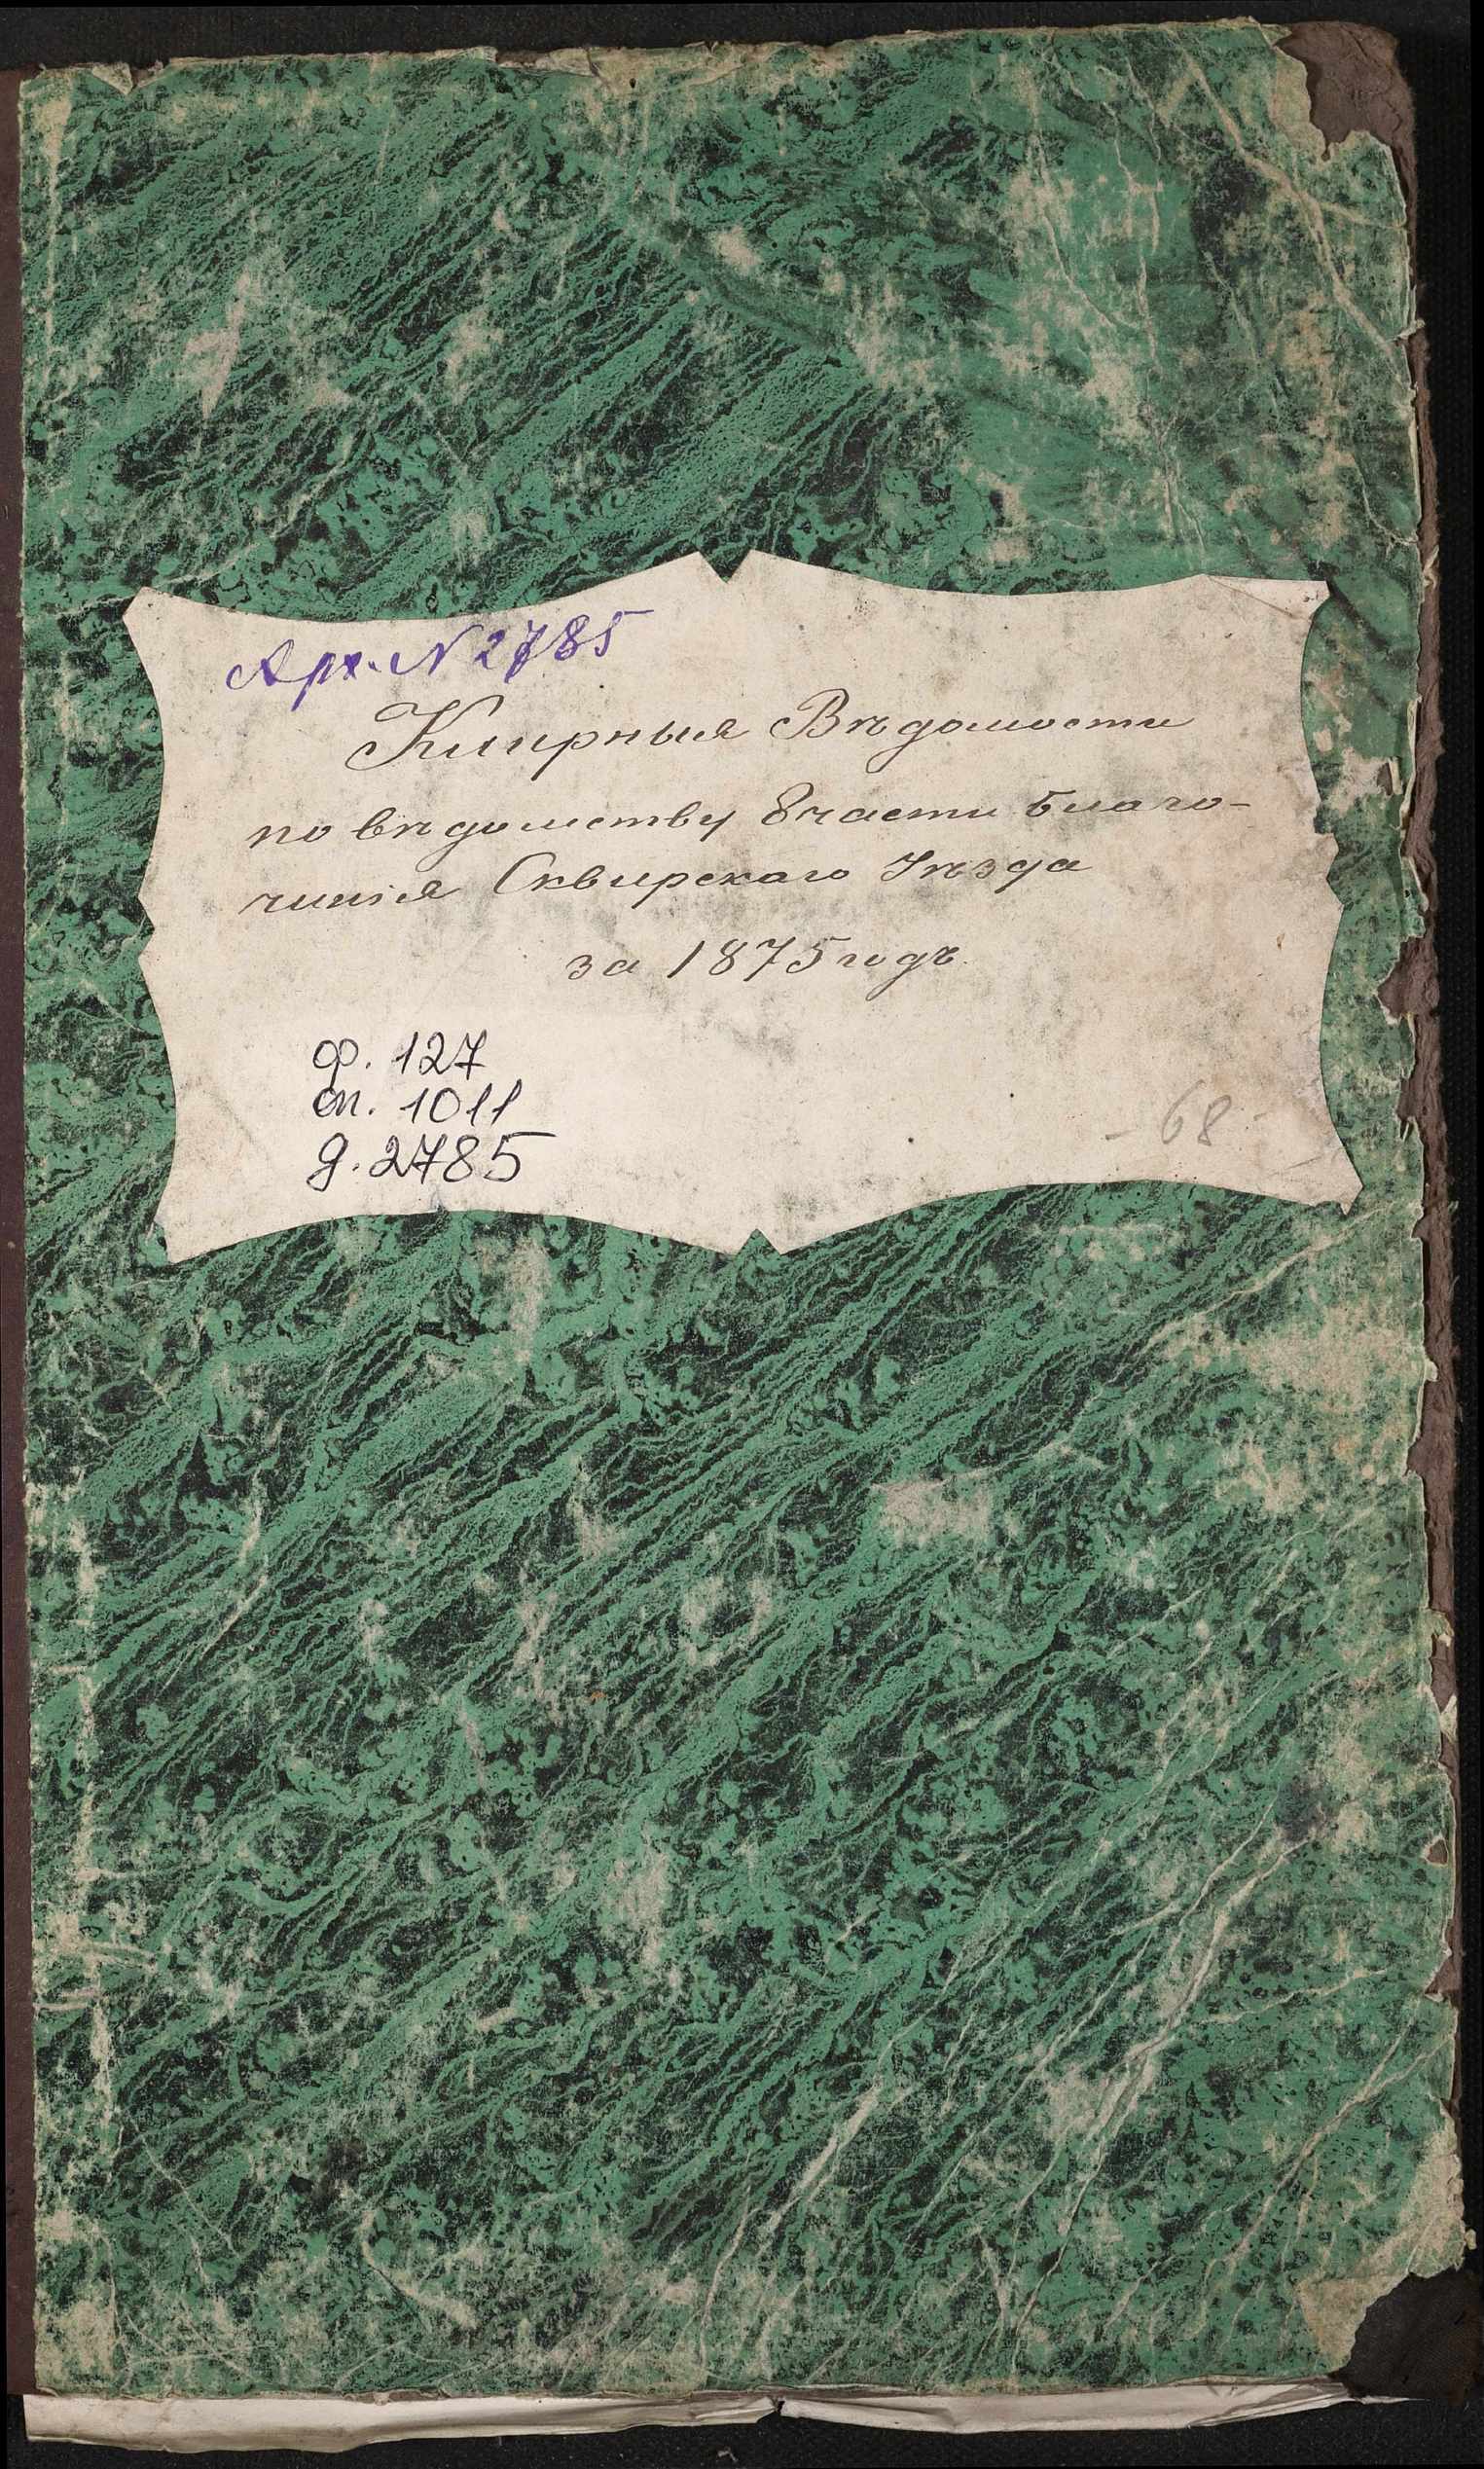 Арх. № 2785
Клирныя Вѣдомости
по вѣдомству 8 части Благо-
чинія Сквирскаго Уѣзда
за 1875 годъ.
ф. 127
оп. 1011
д. 2785
- 68 -